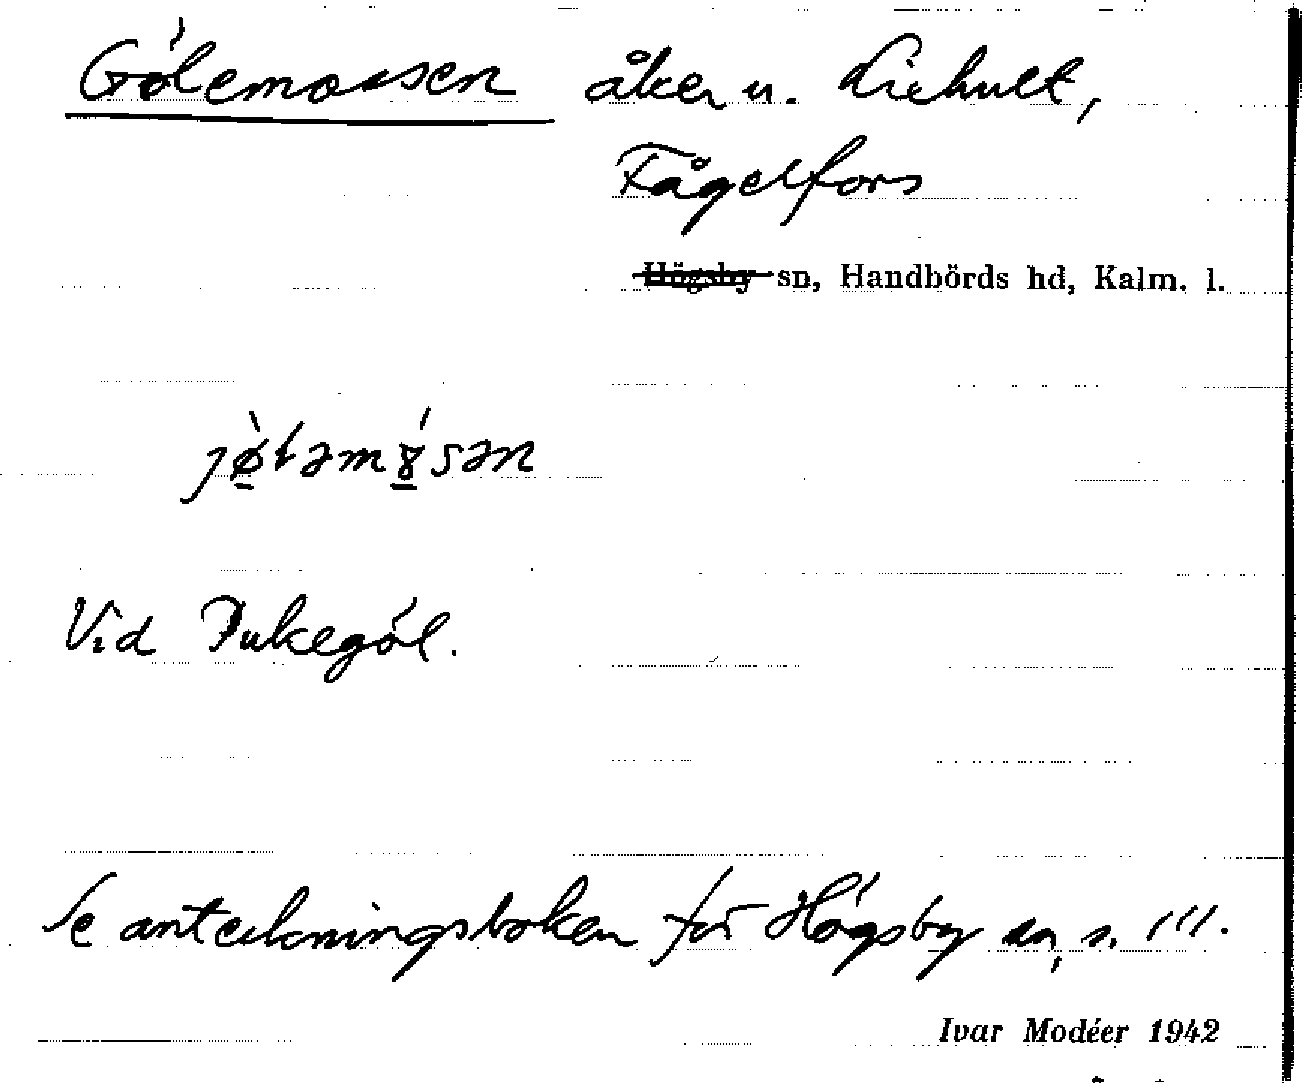 Gölemossen åker u. Liehult,
Fågelfors
Högsby sn, Handbörds hd, Kalm. l.
Vid Dukegöl.
Se anteckningsboken för Högsby sn, s. 111.
Ivar Modéer 1942